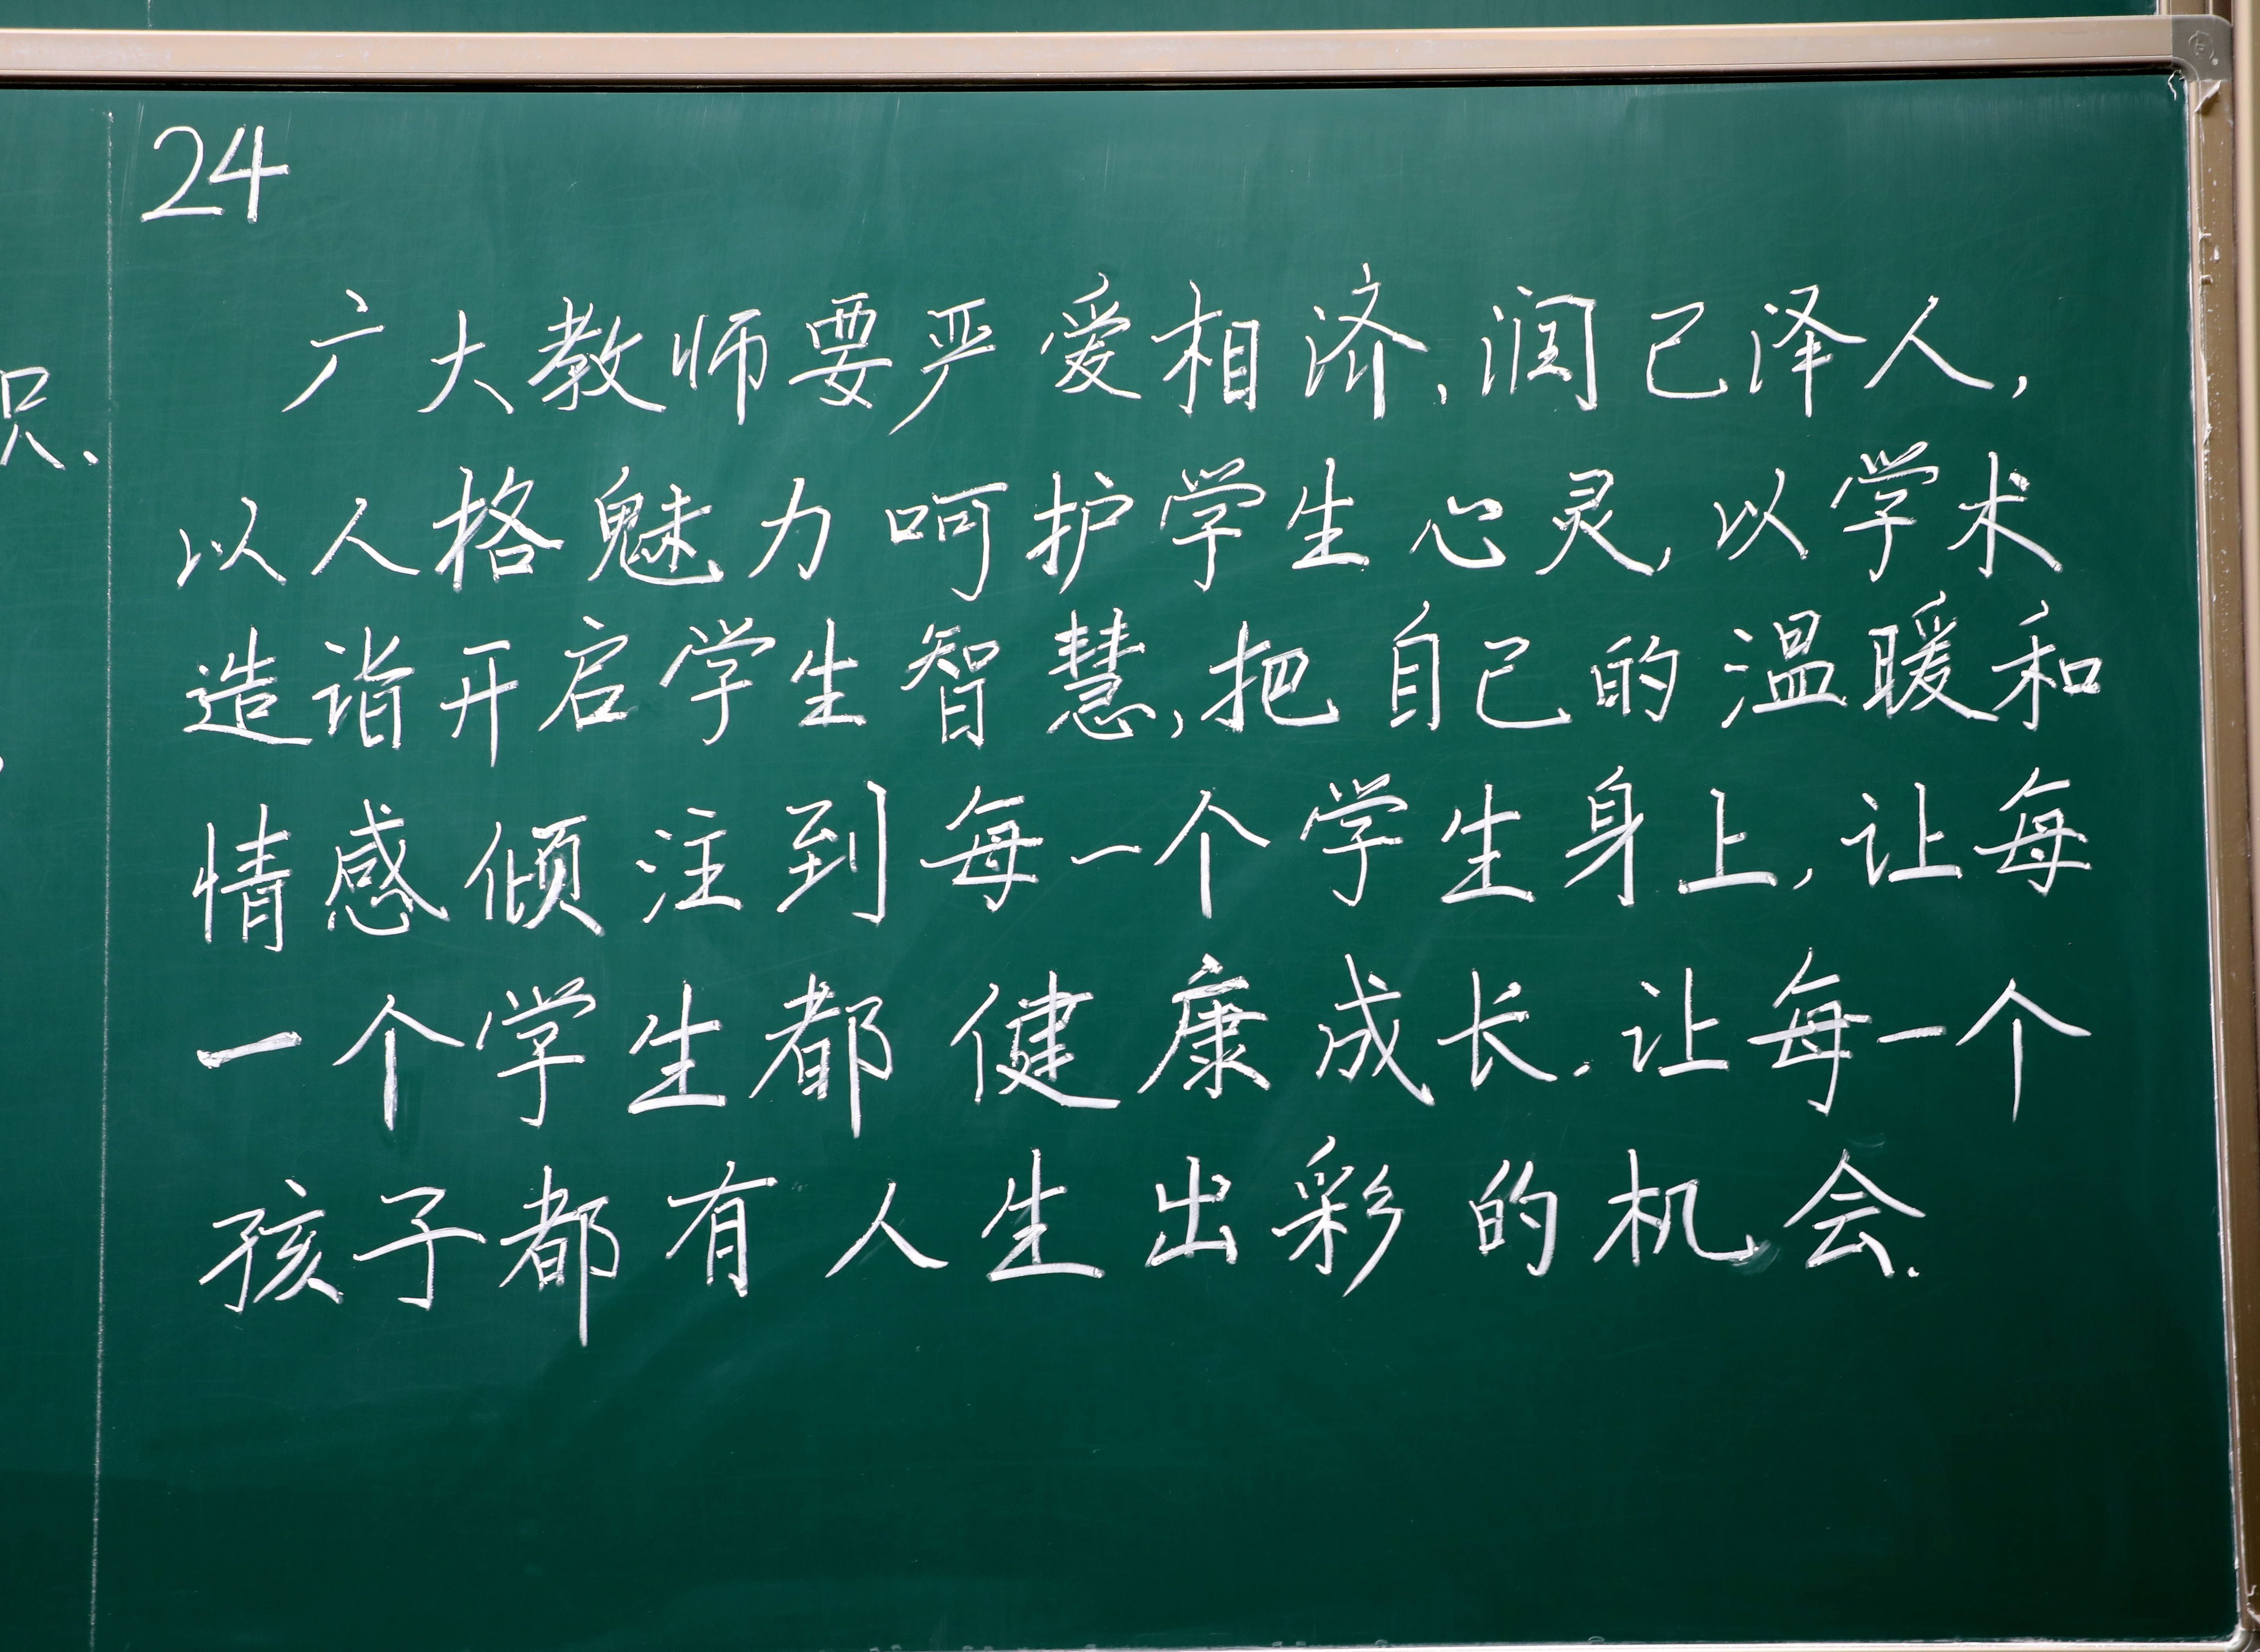 24
广大教师要严爱相济,润己泽人,
以人格魅力呵护学生心灵,以学术
造诣开启学生智慧,把自己的温暖和
情感倾注到每一个学生身上,让每
一个学生都健康成长.让每一个
孩子都有人生出彩的机会.